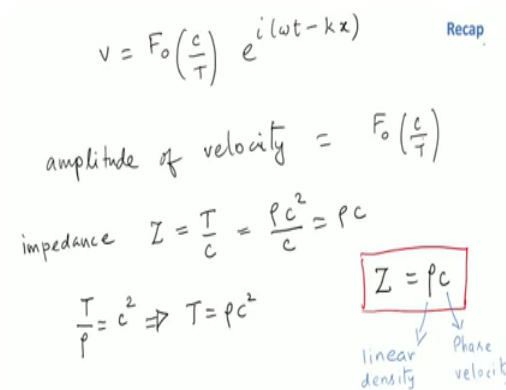 Recap
v = F₀(c/T) e^{i(ωt-kx)}
amplitude of velocity = F₀(c/T)
impedance Z = T/c = ρc²/c = ρc
T/ρ = c² ⇒ T = ρc²
Z = ρc
linear density
Phase velocity